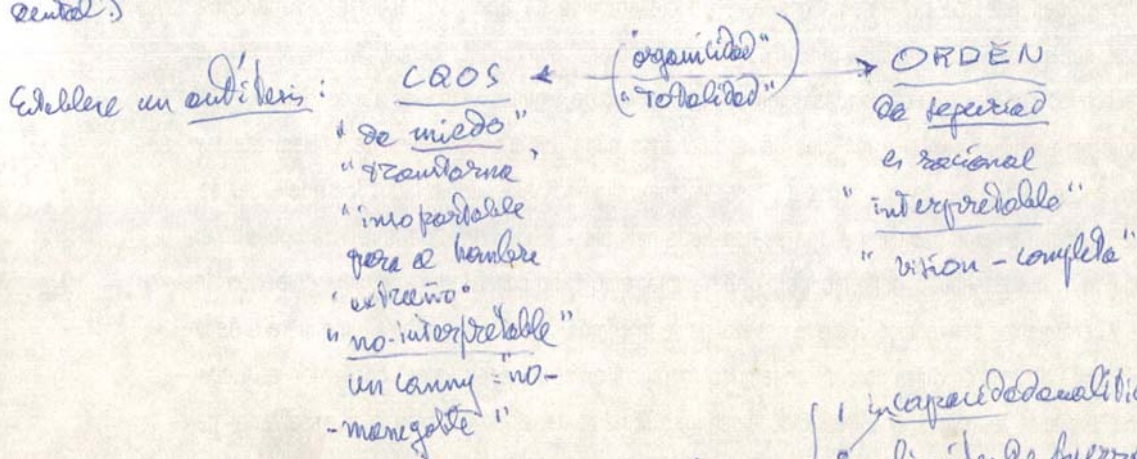 dental.)
Establece un antítesis:
CAOS
("organicidad"
"Totalidad")
ORDEN
"da miedo"
"transtorna"
"insoportable
para el hombre
"extraño"
"no-interpretable"
uncanny = "no-
-manegable"
Da seguridad
es racional
"interpretable"
"vision-completa"
1 incapacidad analitic